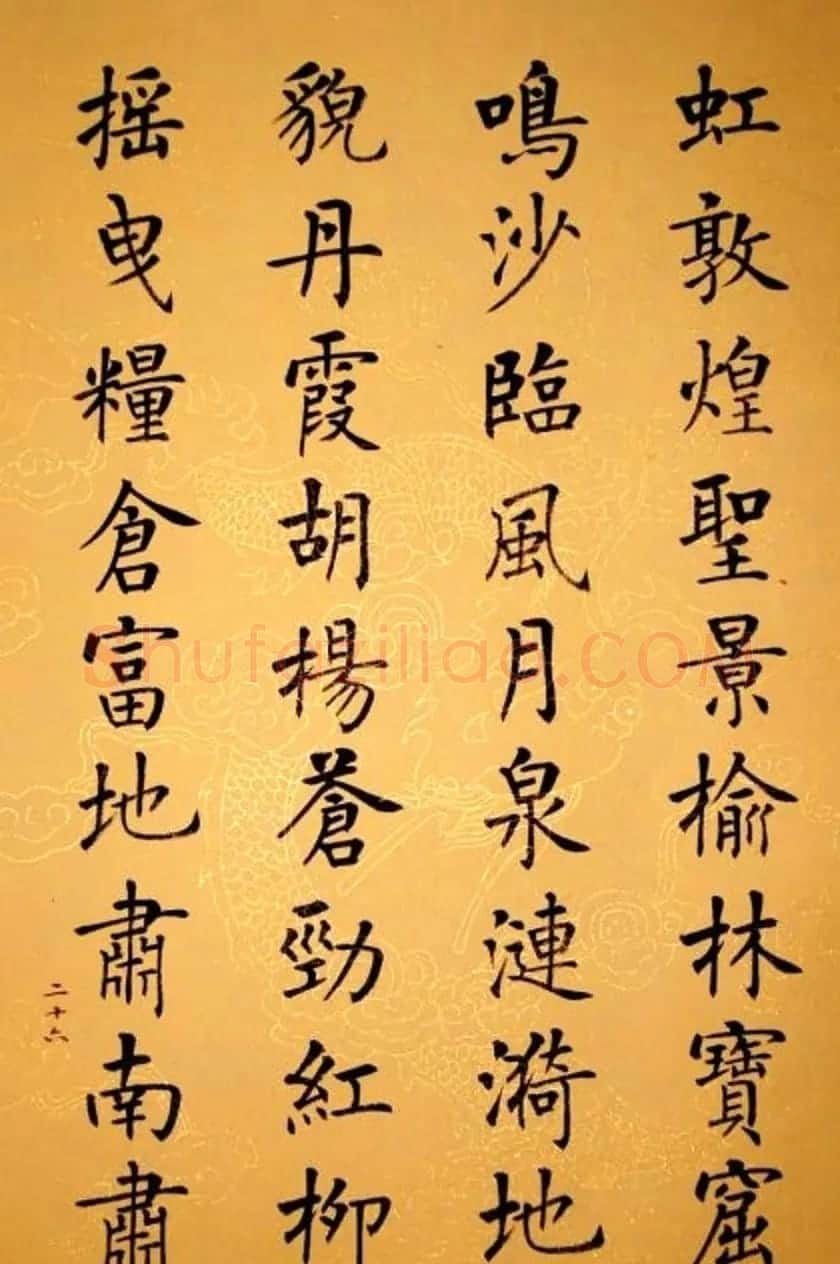 虹敦煌聖景榆林寶窟
鳴沙臨風月泉漣漪地
貌丹霞胡楊蒼勁紅柳
摇曳糧倉富地肅南肅
二十六
Shufaziliao.COM